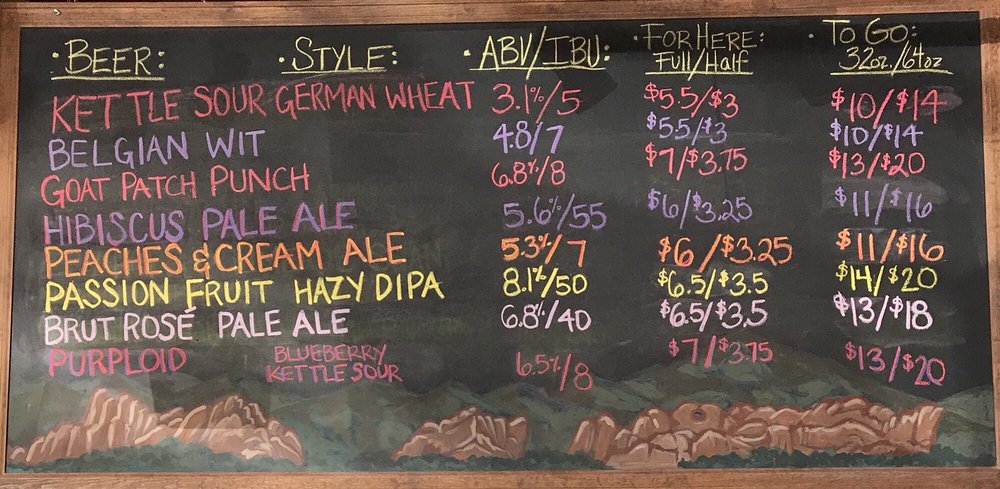 · BEER: · STYLE: · ABV/IBU: · FOR HERE: Full/Half · TO GO: 32oz./64oz
KETTLE SOUR GERMAN WHEAT 3.1%/5 $5.5/$3 $10/$14
BELGIAN WIT 4.8/7 $5.5/$3 $10/$14
GOAT PATCH PUNCH 6.8%/8 $7/$3.75 $13/$20
HIBISCUS PALE ALE 5.6%/55 $6/$3.25 $11/$16
PEACHES & CREAM ALE 5.3%/7 $6/$3.25 $11/$16
PASSION FRUIT HAZY DIPA 8.1%/50 $6.5/$3.5 $14/$20
BRUT ROSÉ PALE ALE 6.8%/40 $6.5/$3.5 $13/$18
PURPLOID BLUEBERRY KETTLE SOUR 6.5%/8 $7/$3.75 $13/$20